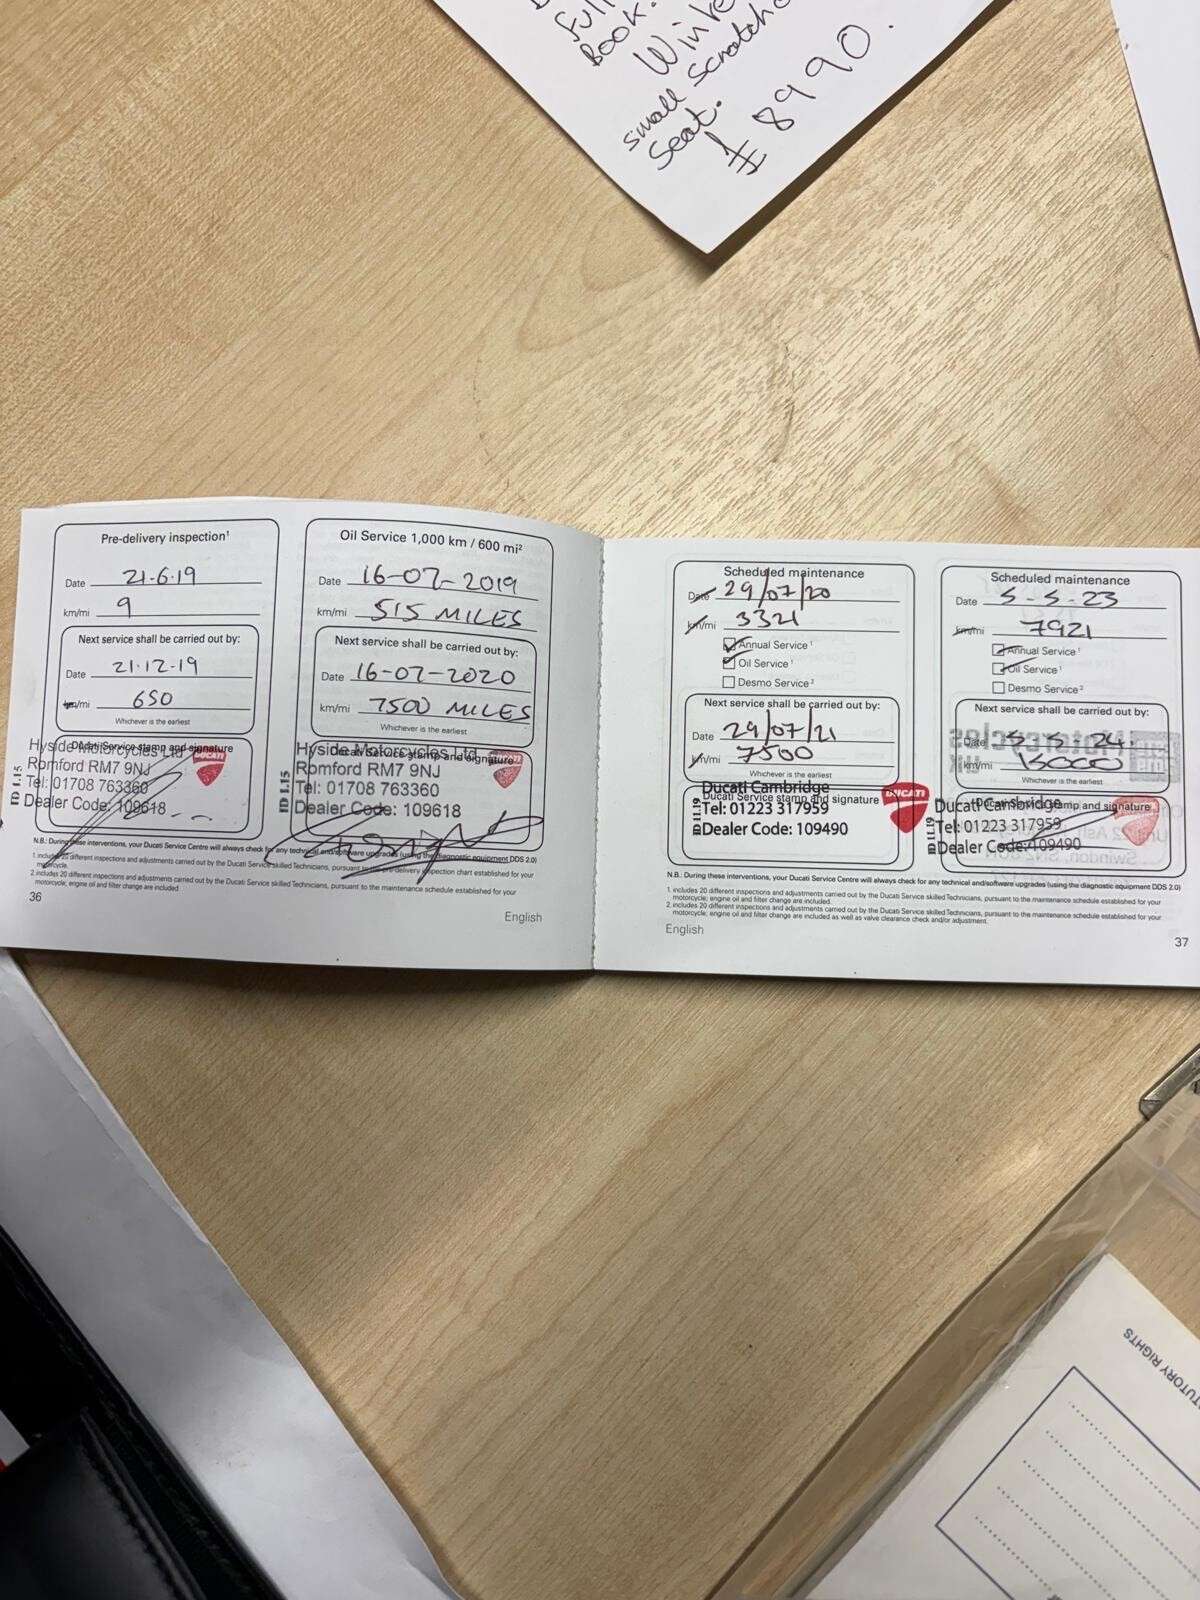 Full
Book.
Winte
small scratche
Seat.
£ 8990.
Pre-delivery inspection¹
Date 21-6-19
km/mi 9
Next service shall be carried out by:
Date 21-12-19
km/mi 650
Whichever is the earliest
Ducati Service stamp and signature
Hyside Motorcycles Ltd
Romford RM7 9NJ
Tel: 01708 763360
Dealer Code: 109618
ID 1.15
DUCATI
Oil Service 1,000 km / 600 mi²
Date 16-07-2019
km/mi 515 MILES
Next service shall be carried out by:
Date 16-07-2020
km/mi 7500 MILES
Whichever is the earliest
Ducati Service stamp and signature
Hyside Motorcycles Ltd
Romford RM7 9NJ
Tel: 01708 763360
Dealer Code: 109618
ID 1.15
N.B.: During these interventions, your Ducati Service Centre will always check for any technical and/software upgrades (using the diagnostic equipment DDS 2.0)
1. includes 20 different inspections and adjustments carried out by the Ducati Service skilled Technicians, pursuant to the pre-delivery inspection chart established for your
motorcycle.
2. includes 20 different inspections and adjustments carried out by the Ducati Service skilled Technicians, pursuant to the maintenance schedule established for your
motorcycle; engine oil and filter change are included
36
English
Scheduled maintenance
Date 29/07/20
km/mi 3321
Annual Service ¹
Oil Service ¹
Desmo Service ²
Next service shall be carried out by:
Date 29/07/21
km/mi 7500
Whichever is the earliest
Ducati Service stamp and signature
Ducati Cambridge
Tel: 01223 317959
Dealer Code: 109490
ID 11.19
DUCATI
Scheduled maintenance
Date 5-5-23
km/mi 7921
Annual Service ¹
Oil Service ¹
Desmo Service ²
Next service shall be carried out by:
Date 5-5-24.
km/mi 13000
Whichever is the earliest
Ducati Service stamp and signature
Ducati Cambridge
Tel: 01223 317959
Dealer Code: 109490
ID 11.19
N.B.: During these interventions, your Ducati Service Centre will always check for any technical and/software upgrades (using the diagnostic equipment DDS 2.0)
1. includes 20 different inspections and adjustments carried out by the Ducati Service skilled Technicians, pursuant to the maintenance schedule established for your
motorcycle; engine oil and filter change are included.
2. includes 20 different inspections and adjustments carried out by the Ducati Service skilled Technicians, pursuant to the maintenance schedule established for your
motorcycle; engine oil and filter change are included as well as valve clearance check and/or adjustment.
English
37
TUTORY RIGHTS